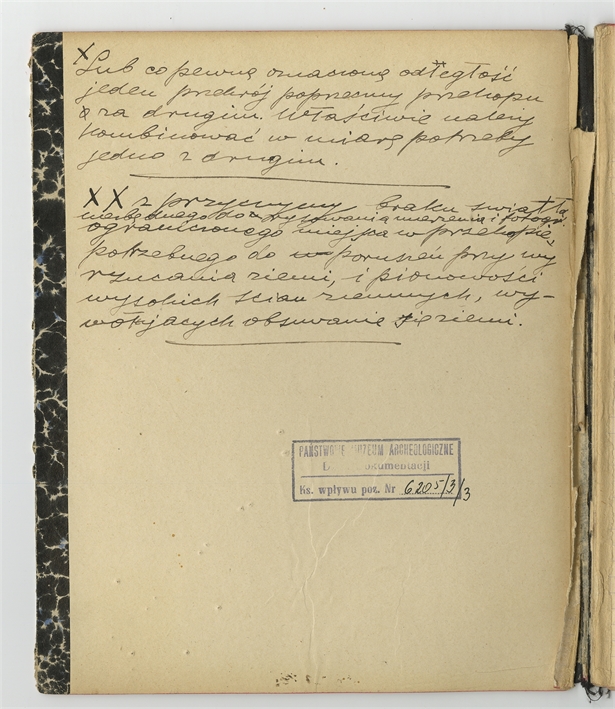 X
Lub co pewną oznaczoną odległość
jeden przekrój poprzeczny przekopu
za drugim. Właściwie należy
kombinować w miarę potrzeby
jedno z drugim.
XX z przyczyny braku światła,
niezbędnego do rysowania mierzenia i fotogr.
ograniczonego miejsca w przekopie,
potrzebnego do poruszeń przy wy
rzucania ziemi, i pionowości
wysokich ścian ziemnych, wy-
wołujących obsuwanie się ziemi.
PAŃSTWOWE MUZEUM ARCHEOLOGICZNE
Dokumentacji
Ks. wpływu poz. Nr 6205/3/3